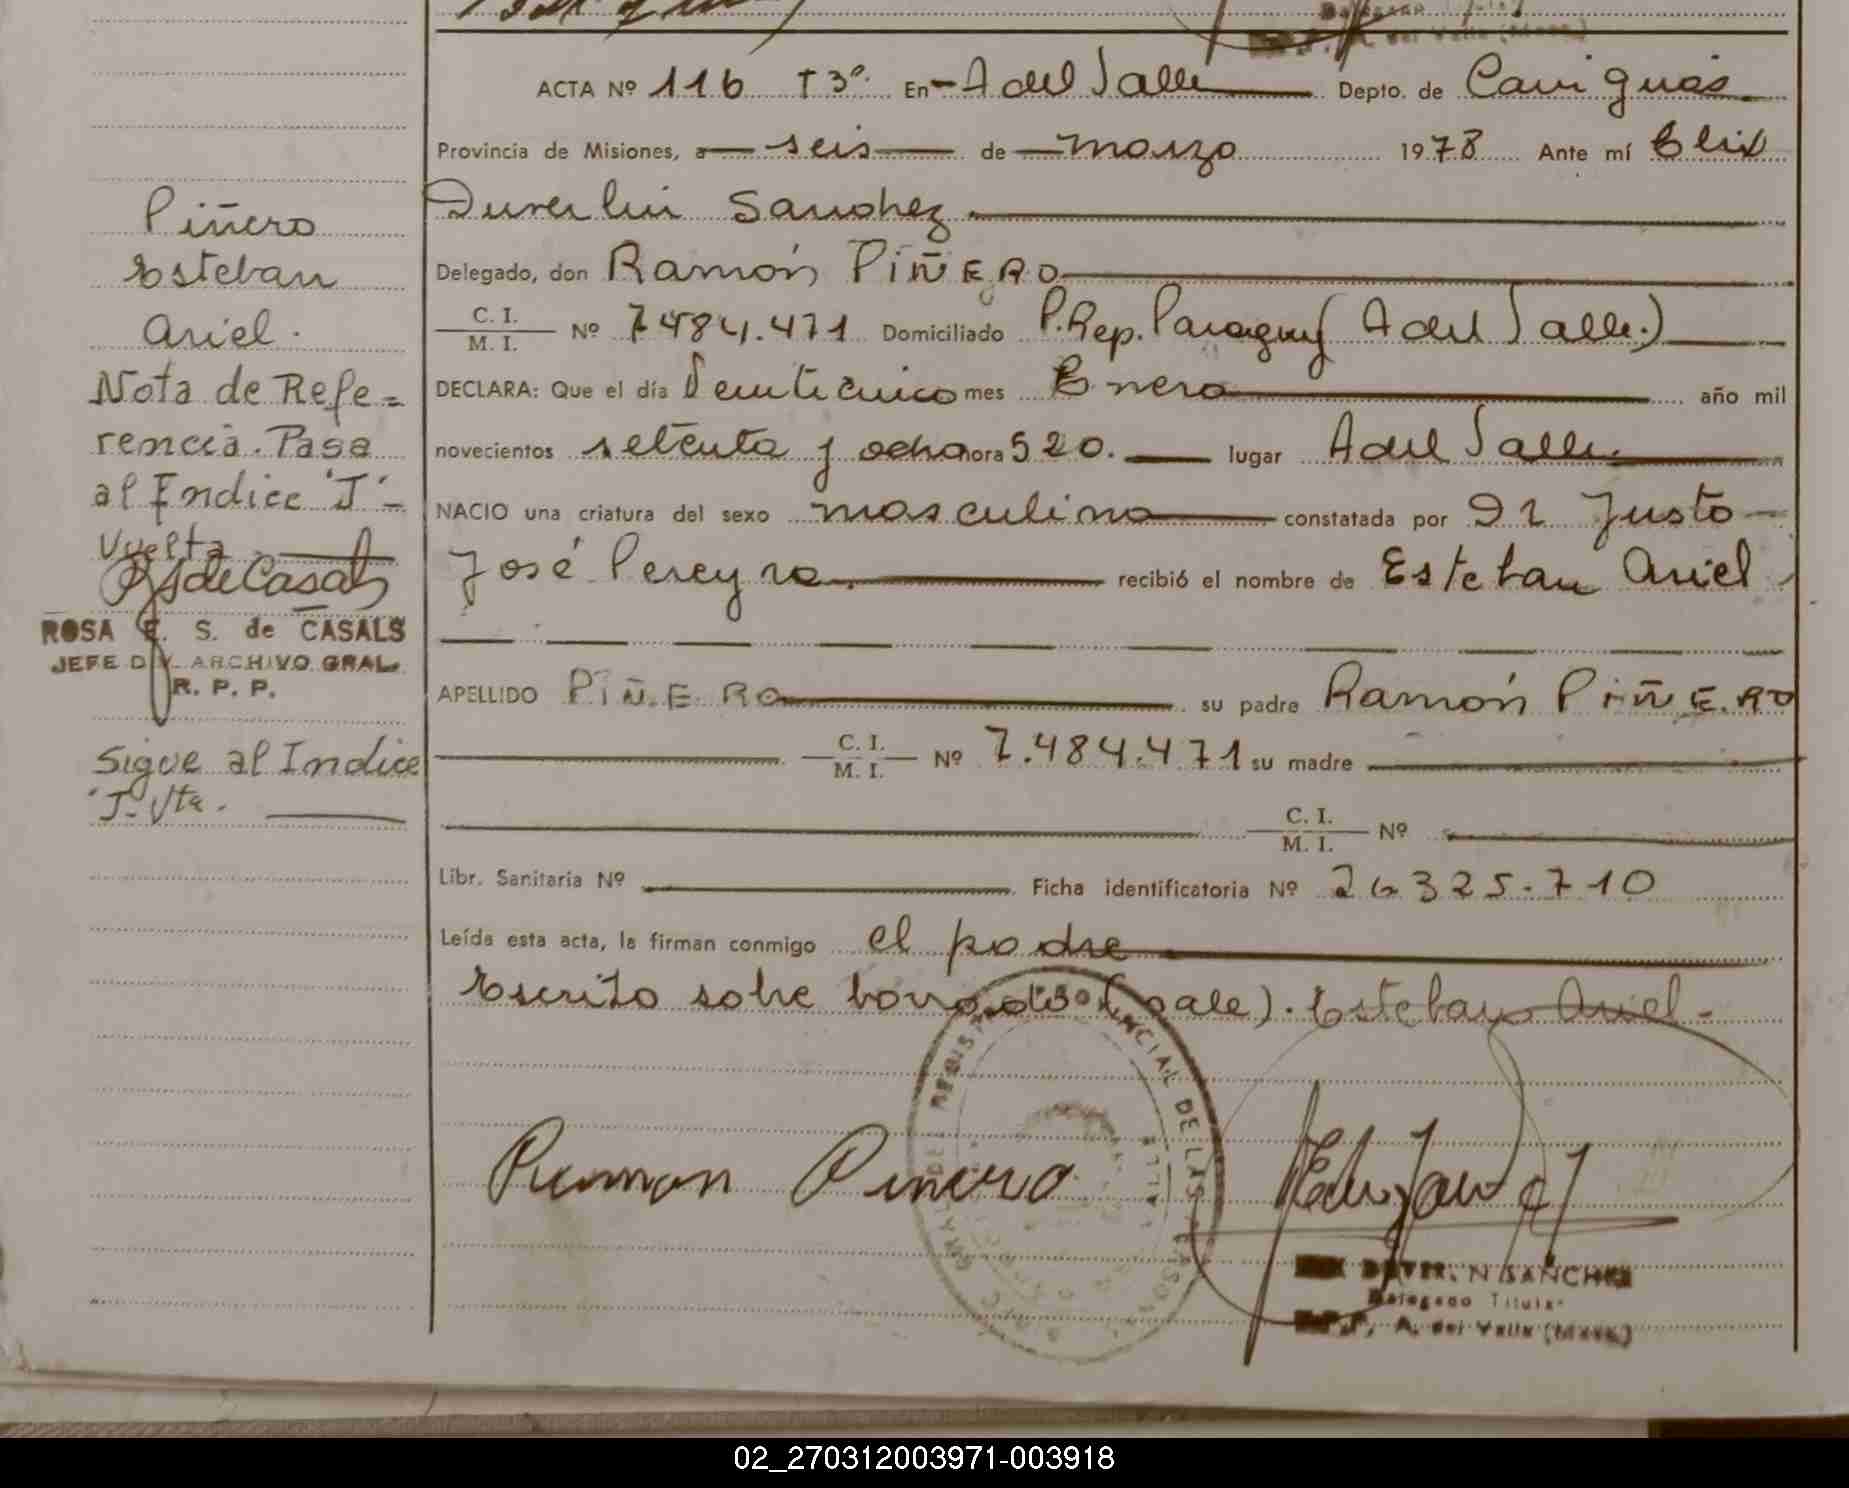 ACTA Nº 116 T3º. En A del Valle Depto. de Cainguás
Provincia de Misiones, a seis de marzo 1978 Ante mí Elix
Duverlin Sanchez
Delegado, don Ramón PIÑERO
C. I. / M. I. Nº 7.484.471 Domiciliado P. Rep. Paraguay (A del Valle.)
DECLARA: Que el día Veinticinco mes Enero año mil
novecientos setenta y ocho hora 520. lugar A del Valle
NACIO una criatura del sexo masculino constatada por Justo
José Pereyra. recibió el nombre de Esteban Ariel
APELLIDO PIÑERO su padre Ramón PIÑERO
C. I. / M. I. Nº 7.484.471 su madre
C. I. / M. I. Nº
Libr. Sanitaria Nº Ficha identificatoria Nº 26.325.710
Leída esta acta, la firman conmigo el padre
Escrito sobre borrado (vale). Esteban Ariel.-
Ramon Piñero
SANCHEZ
Delegado Titular
A. del Valle (Mnes.)
Piñero
Esteban
Ariel.
Nota de Refe=
rencia. Pasa
al Indice "J"-
Vuelta
RSdeCasals
ROSA E. S. de CASALS
JEFE DIV. ARCHIVO GRAL.
R. P. P.
Sigue al Indice
"J- Vta.
02_270312003971-003918